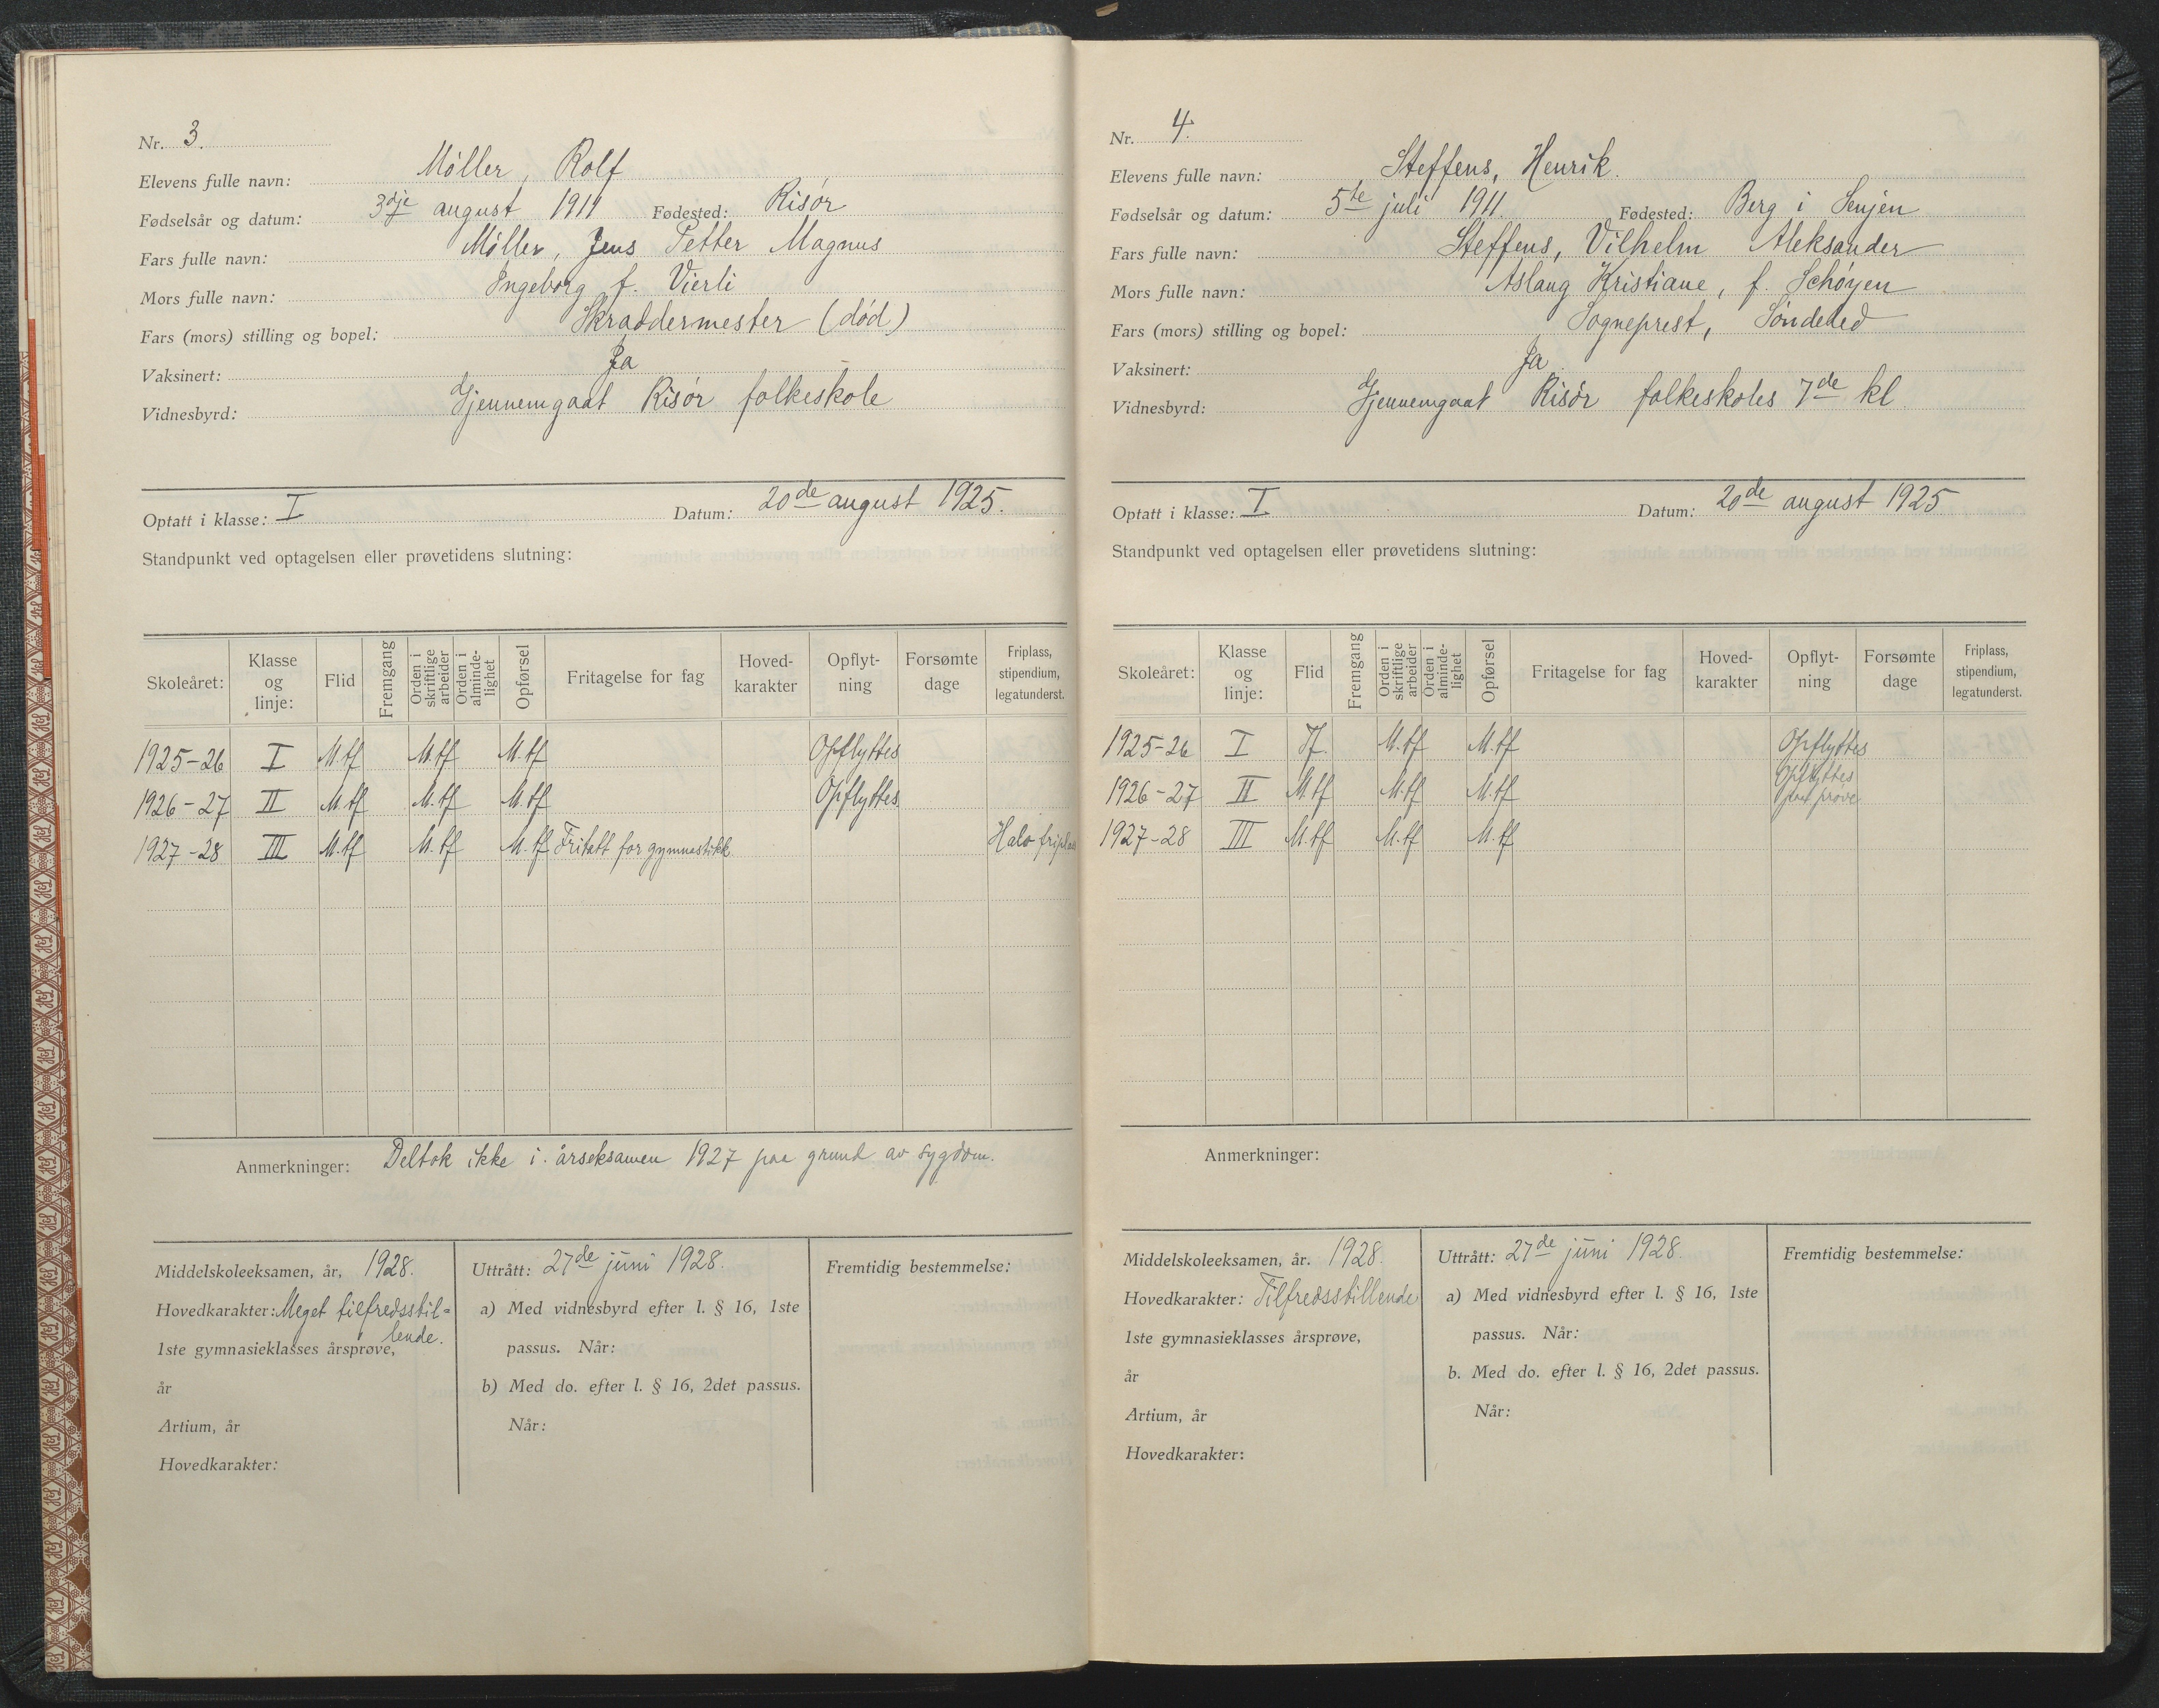 Nr. 3.
Elevens fulle navn: Møller, Rolf
Fødselsår og datum: 3dje august 1911 Fødested: Risør
Fars fulle navn: Møller, Jens Petter Magnus
Mors fulle navn: Ingeborg f. Vierli
Fars (mors) stilling og bopel: Skræddermester (død)
Vaksinert: Ja
Vidnesbyrd: Gjennemgaat Risør folkeskole
Optatt i klasse: I Datum: 20de august 1925.
Standpunkt ved optagelsen eller prøvetidens slutning:
Skoleåret: Klasse og linje: Flid Fremgang Orden i skriftlige arbeider Orden i alminde-lighet Opførsel Fritagelse for fag Hoved-karakter Opflyt-ning Forsømte dage Friplass, stipendium, legatunderst.
1925-26 I M.tf M.tf M.tf Opflyttes
1926-27 II M.tf M.tf M.tf Opflyttes
1927-28 III M.tf M.tf M.tf Fritatt for gymnastikk Halv friplass
Anmerkninger: Deltok ikke i årseksamen 1927 paa grund av sygdom.
Middelskoleeksamen, år, 1928.
Hovedkarakter: Meget tilfredsstil=
lende.
1ste gymnasieklasses årsprøve,
år
Artium, år
Hovedkarakter:
Uttrått: 27de juni 1928.
a) Med vidnesbyrd efter l. § 16, 1ste
passus. Når:
b) Med do. efter l. § 16, 2det passus.
Når:
Fremtidig bestemmelse:
Nr. 4.
Elevens fulle navn: Steffens, Henrik.
Fødselsår og datum: 5te juli 1911. Fødested: Berg i Senjen
Fars fulle navn: Steffens, Vilhelm Aleksander
Mors fulle navn: Aslaug Kristiane, f. Schøyen
Fars (mors) stilling og bopel: Sogneprest, Søndeled
Vaksinert: Ja
Vidnesbyrd: Gjennemgaat Risør folkeskoles 7de kl.
Optatt i klasse: I Datum: 20de august 1925
Standpunkt ved optagelsen eller prøvetidens slutning:
Skoleåret: Klasse og linje: Flid Fremgang Orden i skriftlige arbeider Orden i alminde-lighet Opførsel Fritagelse for fag Hoved-karakter Opflyt-ning Forsømte dage Friplass, stipendium, legatunderst.
1925-26 I Tf. M.tf M.tf Opflyttes
1926-27 II M.tf M.tf M.tf Opflyttes paa prøve
1927-28 III M.tf M.tf M.tf
Anmerkninger:
Middelskoleeksamen, år. 1928.
Hovedkarakter: Tilfredsstillende
1ste gymnasieklasses årsprøve,
år
Artium, år
Hovedkarakter:
Uttrått: 27de juni 1928.
a) Med vidnesbyrd efter l. § 16, 1ste
passus. Når:
b. Med do. efter l. § 16, 2det passus.
Når:
Fremtidig bestemmelse: